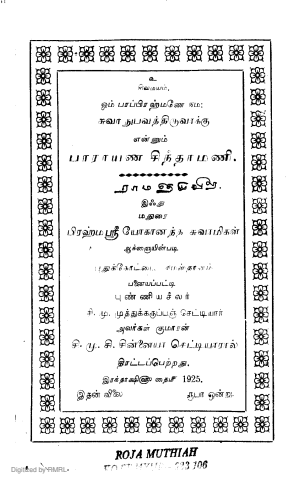 உ
சிவமயம்.
ஓம் பரப்பிரஹ்மணே நம:
சுவாநுபவத்திருவாக்கு
என்னும்
பாராயண சிந்தாமணி.
இஃது
மதுரை
பிரஹ்மஸ்ரீ யோகானந்த சுவாமிகள்
ஆக்ஞையின்படி
புதுக்கோட்டை சமஸ்தானம்
பனையப்பட்டி
புண்ணியச்லர்
சி. மு. முத்துக்கருப்பஞ் செட்டியார்
அவர்கள் குமாரன்
சி. மு. சி. சின்னையா செட்டியாரால்
திரட்டப்பெற்றது.
இரக்தாக்ஷி௵ தைமீ 1925,
இதன் விலை ரூபா ஒன்று.
ROJA MUTHIAH
Digitized by RMRL